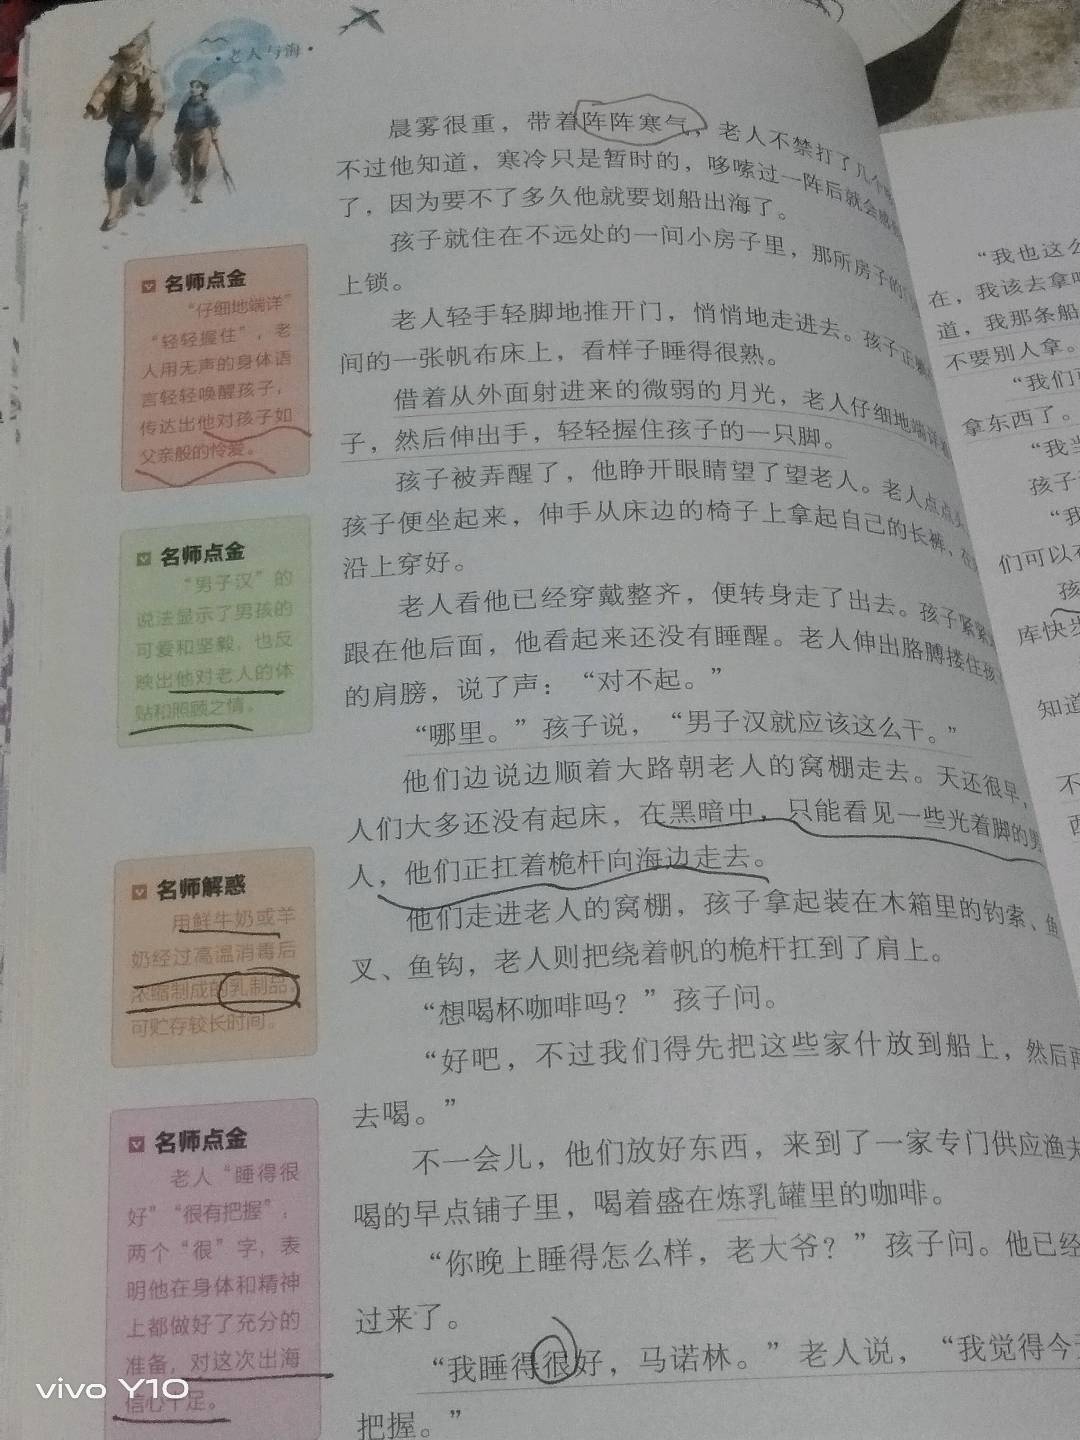 ·老人与海·
晨雾很重，带着阵阵寒气，老人不禁打了几个
不过他知道，寒冷只是暂时的，哆嗦过一阵后就会感
了，因为要不了多久他就要划船出海了。
孩子就住在不远处的一间小房子里，那所房子的门
上锁。
老人轻手轻脚地推开门，悄悄地走进去。孩子正
间的一张帆布床上，看样子睡得很熟。
借着从外面射进来的微弱的月光，老人仔细地端详
子，然后伸出手，轻轻握住孩子的一只脚。
孩子被弄醒了，他睁开眼睛望了望老人。老人点点
孩子便坐起来，伸手从床边的椅子上拿起自己的长裤，在
沿上穿好。
老人看他已经穿戴整齐，便转身走了出去。孩子紧紧
跟在他后面，他看起来还没有睡醒。老人伸出胳膊搂住孩
的肩膀，说了声：“对不起。”
“哪里。”孩子说，“男子汉就应该这么干。”
他们边说边顺着大路朝老人的窝棚走去。天还很早，
人们大多还没有起床，在黑暗中，只能看见一些光着脚的男
人，他们正扛着桅杆向海边走去。
他们走进老人的窝棚，孩子拿起装在木箱里的钓索、鱼
叉、鱼钩，老人则把绕着帆的桅杆扛到了肩上。
“想喝杯咖啡吗？”孩子问。
“好吧，不过我们得先把这些家什放到船上，然后再
去喝。”
不一会儿，他们放好东西，来到了一家专门供应渔夫
喝的早点铺子里，喝着盛在炼乳罐里的咖啡。
“你晚上睡得怎么样，老大爷？”孩子问。他已经
过来了。
“我睡得很好，马诺林。”老人说，“我觉得今天
把握。”
名师点金
“仔细地端详”
“轻轻握住”，老
人用无声的身体语
言轻轻唤醒孩子，
传达出他对孩子如
父亲般的怜爱。
名师点金
“男子汉”的
说法显示了男孩的
可爱和坚毅，也反
映出他对老人的体
贴和照顾之情。
名师解惑
用鲜牛奶或羊
奶经过高温消毒后
浓缩制成的乳制品，
可贮存较长时间。
名师点金
老人“睡得很
好”“很有把握”，
两个“很”字，表
明他在身体和精神
上都做好了充分的
准备，对这次出海
信心十足。
“我也这么
在，我该去拿
道，我那条船
不要别人拿。
“我们
拿东西了。
“我当
孩子
“我
们可以
孩
库快步
知道
不
西
vivo Y10